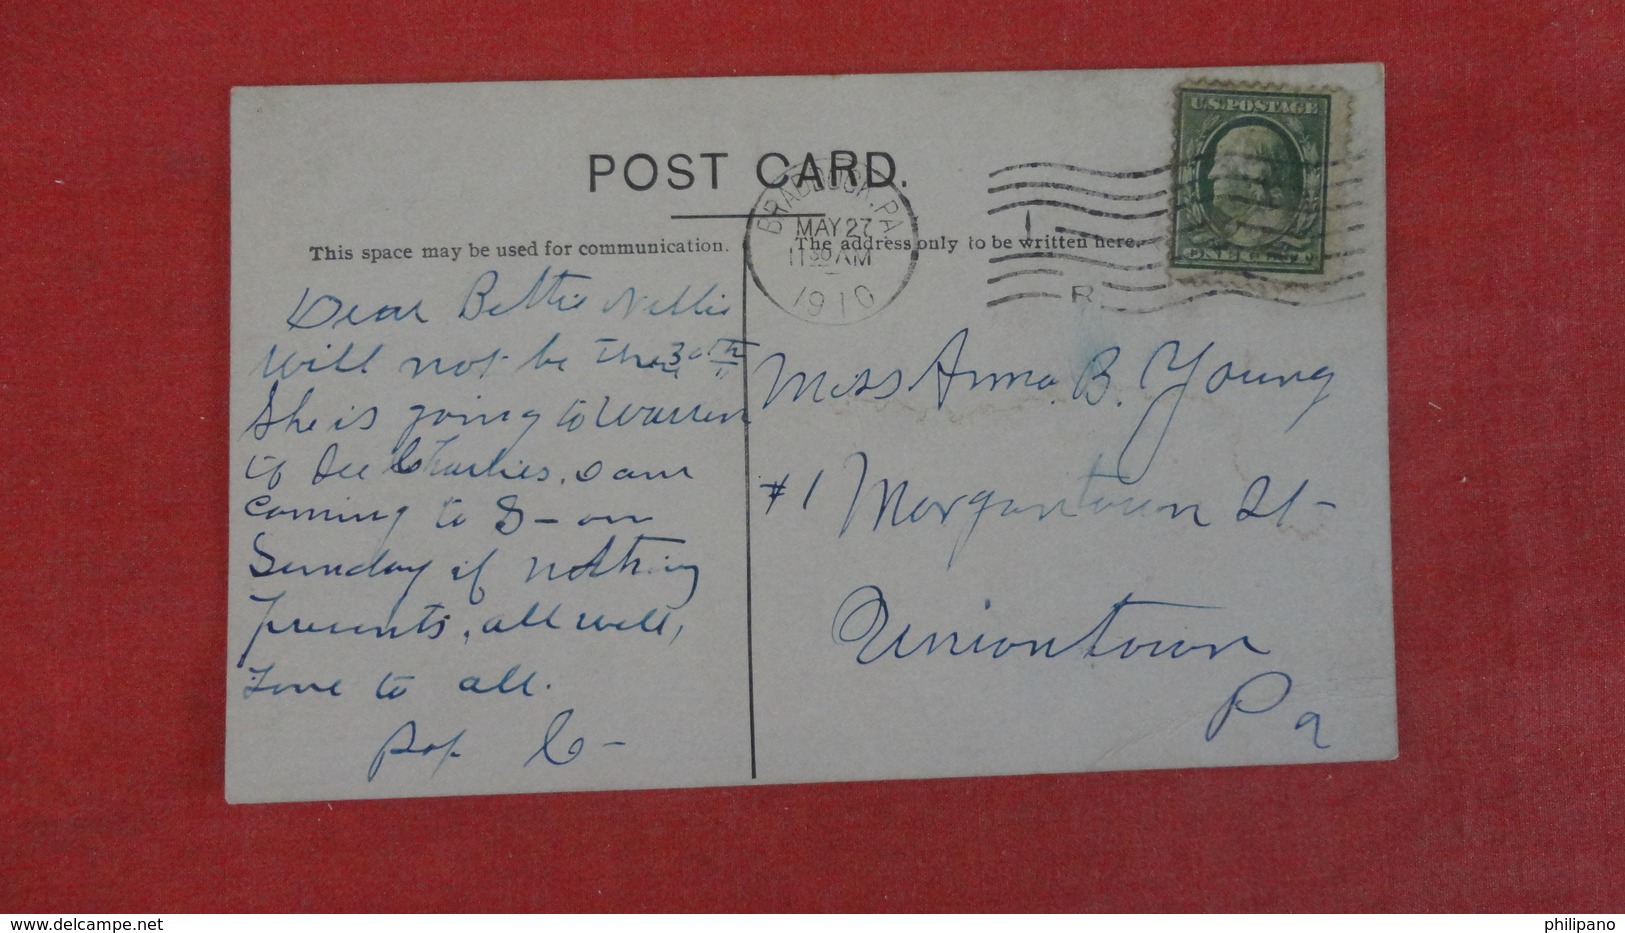 POST CARD.
U.S. POSTAGE
BRADDOCK, PA.
MAY 27
11 30 AM
1910
R
This space may be used for communication.
The address only to be written here.
Dear Bettie Nellie
will not be there 30th
She is going to Warren
to see Charlies, I am
coming to S - on
Sunday if nothing
prevents, all well,
Love to all.
Pop C -
Miss Anna B. Young
#1 Morgantown St -
Uniontown
Pa
delcampe.net
philipano